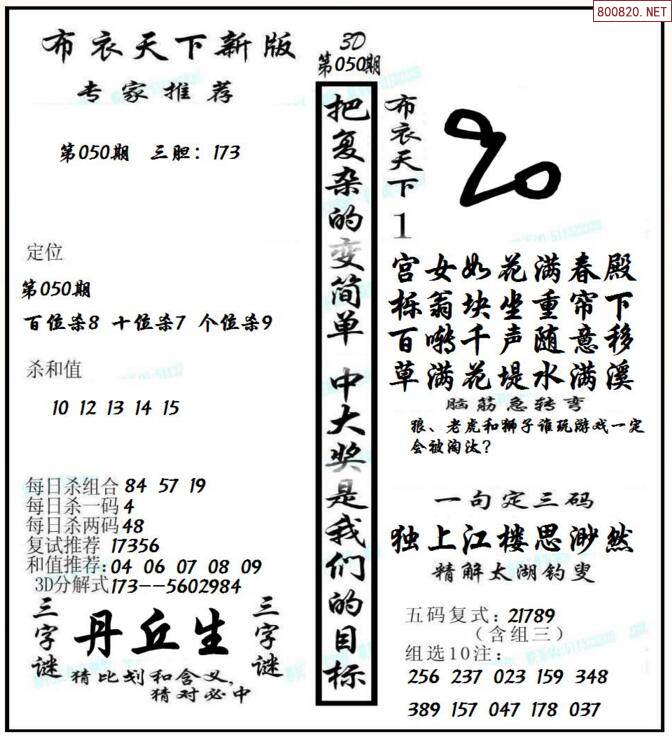 800820.NET
布衣天下新版
专家推荐
第050期 三胆：173
定位
第050期
百位杀8 十位杀7 个位杀9
杀和值
10 12 13 14 15
每日杀组合 84 57 19
每日杀一码 4
每日杀两码 48
复试推荐 17356
和值推荐：04 06 07 08 09
3D分解式 173--5602984
三字谜
丹丘生
三字谜
猜此划和含义，
猜对必中
3D
第050期
把复杂的变简单 中大奖是我们的目标
布衣天下1
宫女如花满春殿
栎翁块坐重帘下
百啭千声随意移
草满花堤水满溪
脑筋急转弯
狼、老虎和狮子谁玩游戏一定
会被淘汰？
一句定三码
独上江楼思渺然
精解太湖钓叟
五码复式：21789
（含组三）
组选10注：
256 237 023 159 348
389 157 047 178 037